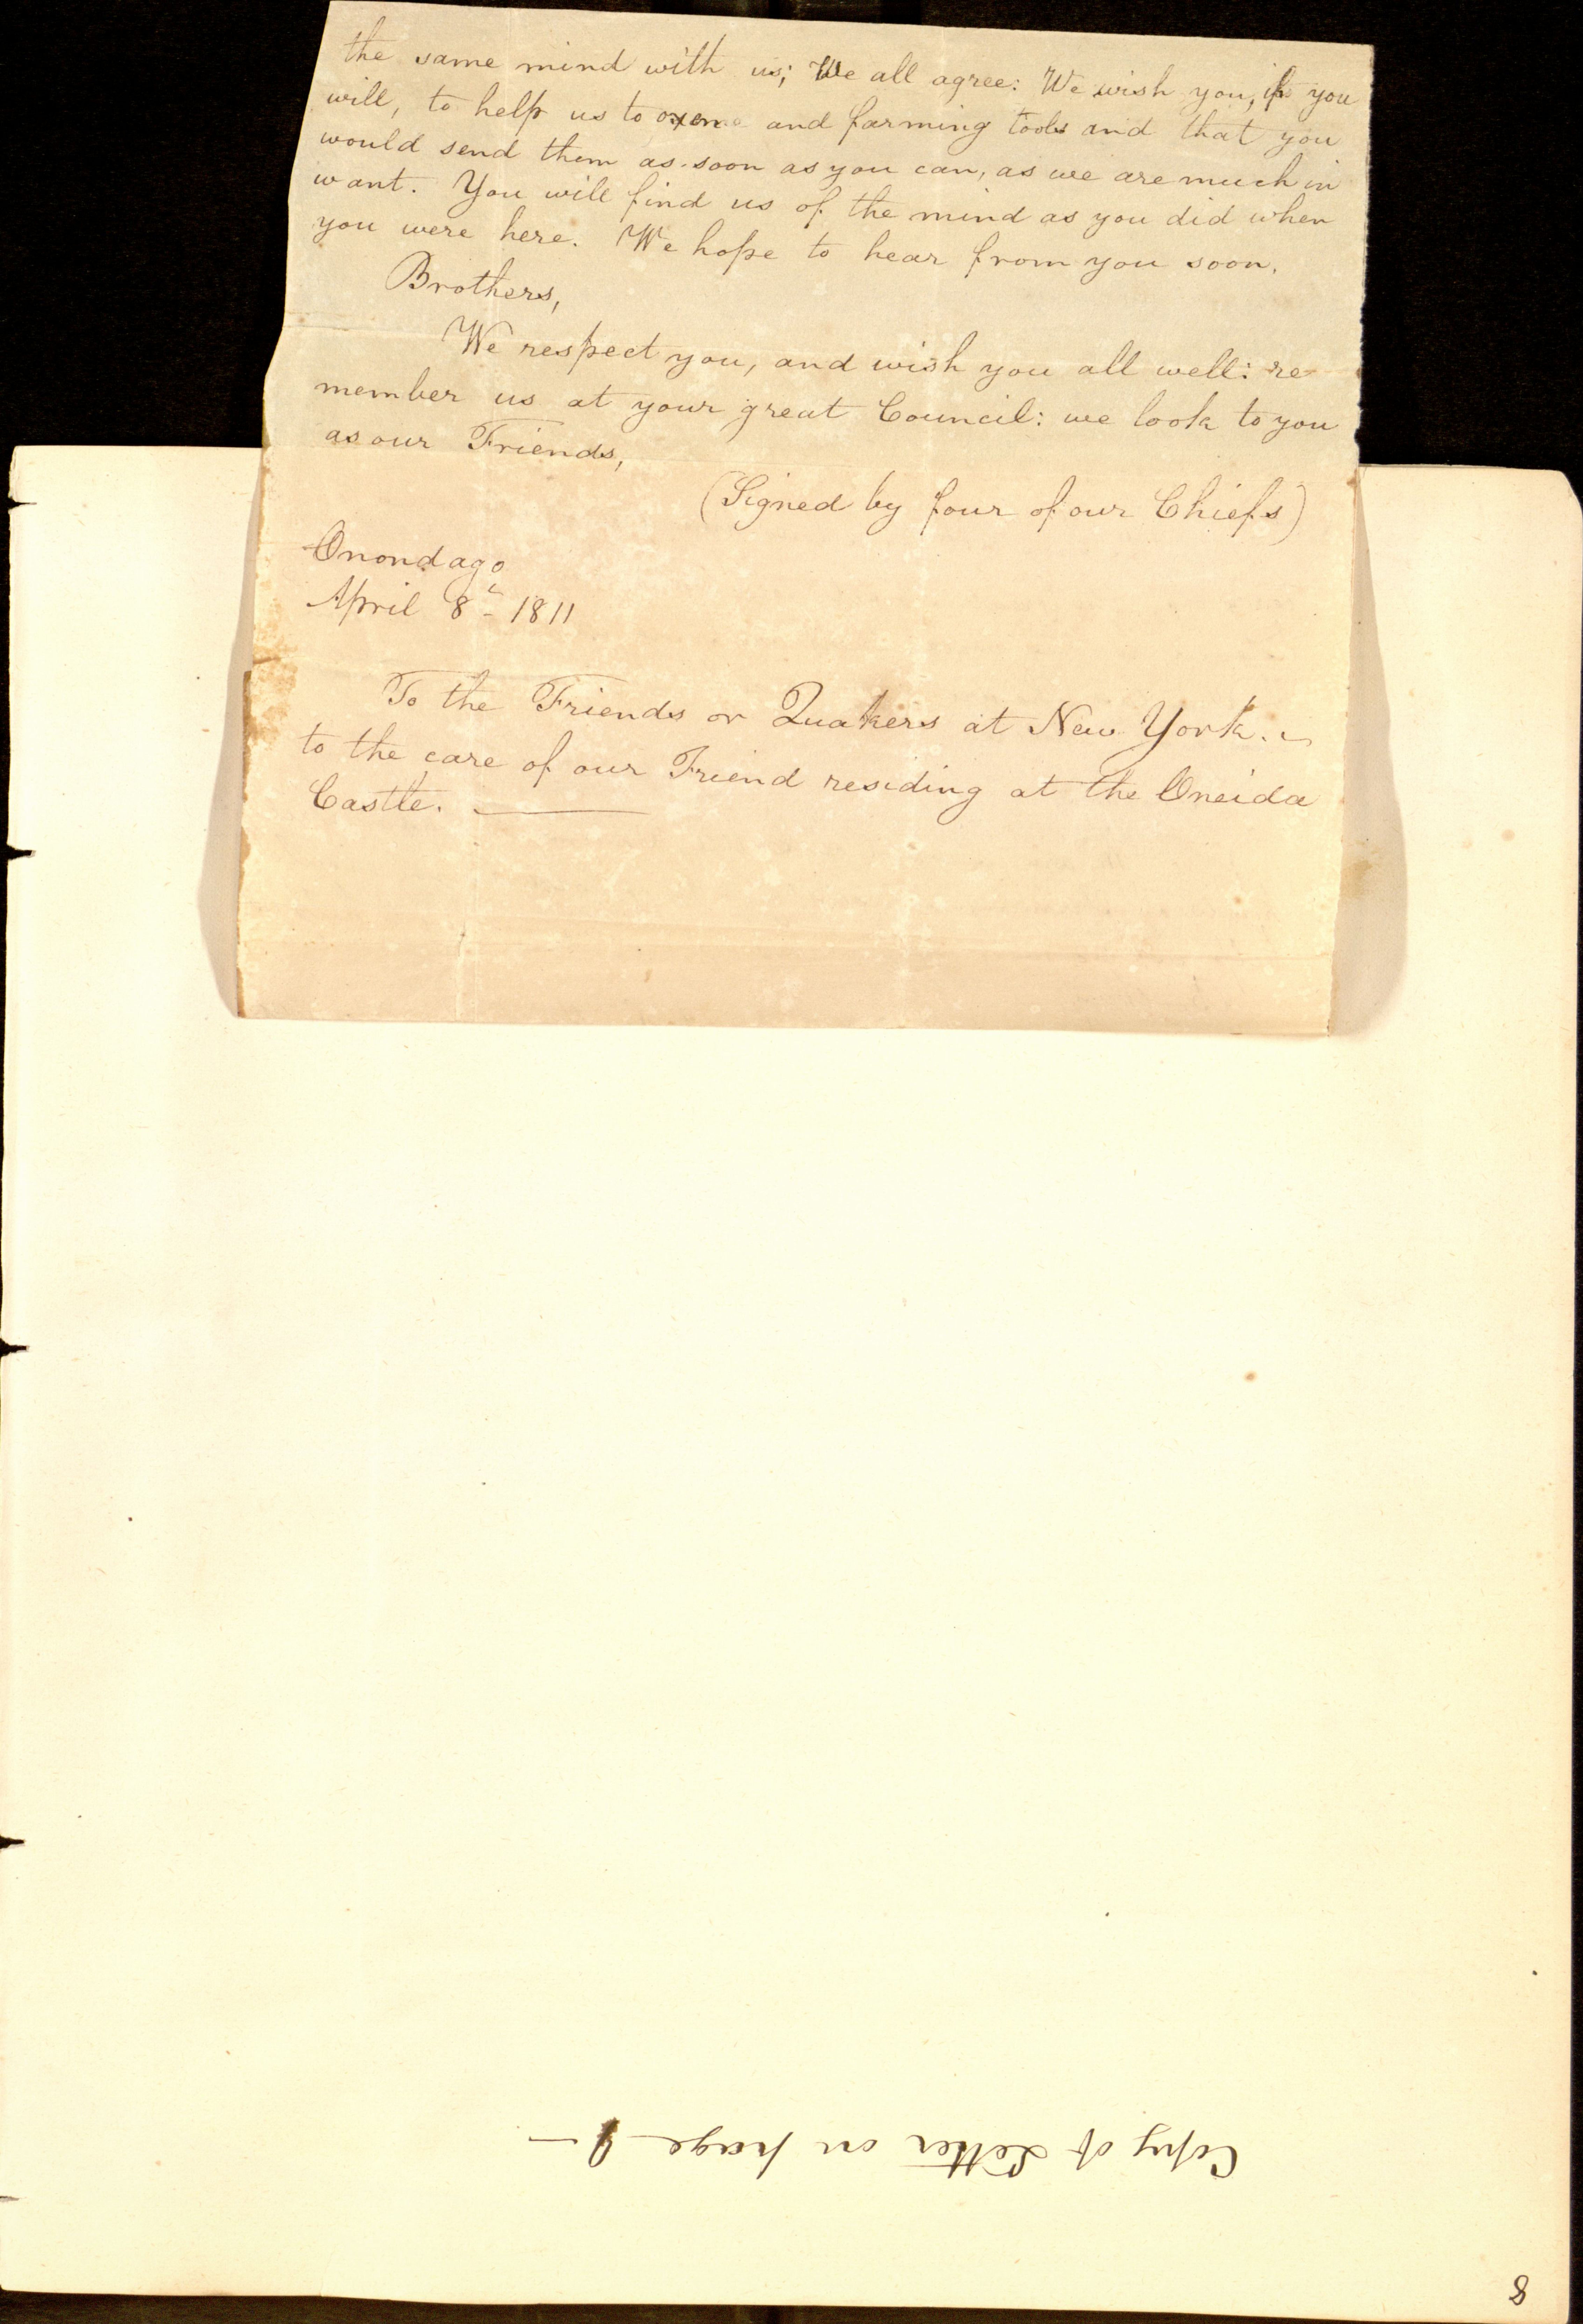 the same mind with us; We all agree: We wish you, if you
will, to help us to oxen and farming tools and that you
would send them as soon as you can, as we are much in
want. You will find us of the mind as you did when
you were here. We hope to hear from you soon.
Brothers,
We respect you, and wish you all well: re
member us at your great Council: we look to you
as our Friends,
(Signed by four of our Chiefs)
Onondago
April 8th 1811
To the Friends or Quakers at New York.
to the care of our Friend residing at the Oneida
Castle.
Copy of Letter on page
8